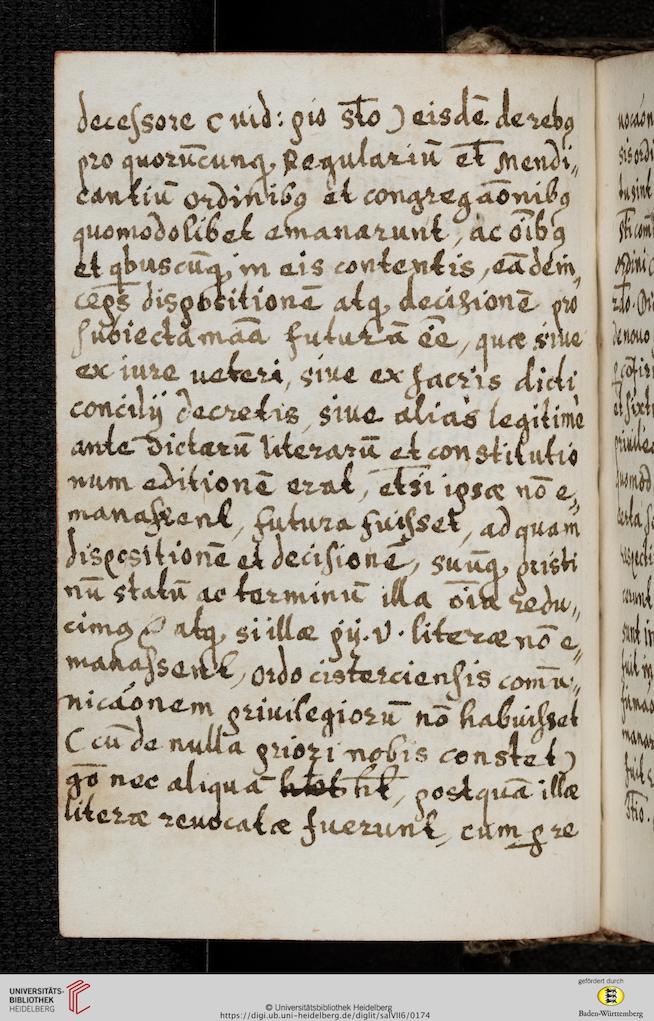 decessore (uid: pio 5to) eisdē de rebꝯ
pro quorūcunq, Regulariū et Mendi„
cantiū ordinibꝯ et congregāonibꝯ
quomodolibet emanarunt, ac oībꝯ
et qbuscūq, in eis contentis, eādem,
disposititionē atq, decisionē pro
subiecta māa futurā ēē, quæ siue
ex iure ueteri, siue ex sacris dicti
concilij decretis, siue aliàs legitimè
ante dictarū literarū et constitutio
num editionē erat, etsi ipsæ nō e„
manassent, futura fuisset, ad quam
dispositionē et decisionē, suūq, pristi
nū statū ac terminū illa oīa redu„
cimꝯ atq, si illæ pij. V. literæ nō e„
manassent, ordo cisterciensis comu„
nicāonem priuilegiorū nō habuisset
(cū de nulla priori nobis constet)
nec aliquā postquā illæ
literæ reuocatæ fuerunt, cum p re
UNIVERSITÄTS-
BIBLIOTHEK
HEIDELBERG
© Universitätsbibliothek Heidelberg
https://digi.ub.uni-heidelberg.de/diglit/salVII6/0174
gefördert durch
Baden-Württemberg